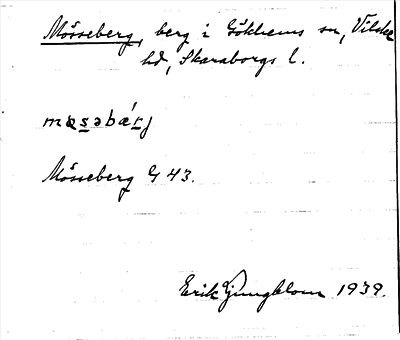 Mösseberg, berg i Gökhems sn, Vilske
hd, Skaraborgs l.
Mösseberg G 43.
Erik Ljungblom 1939.